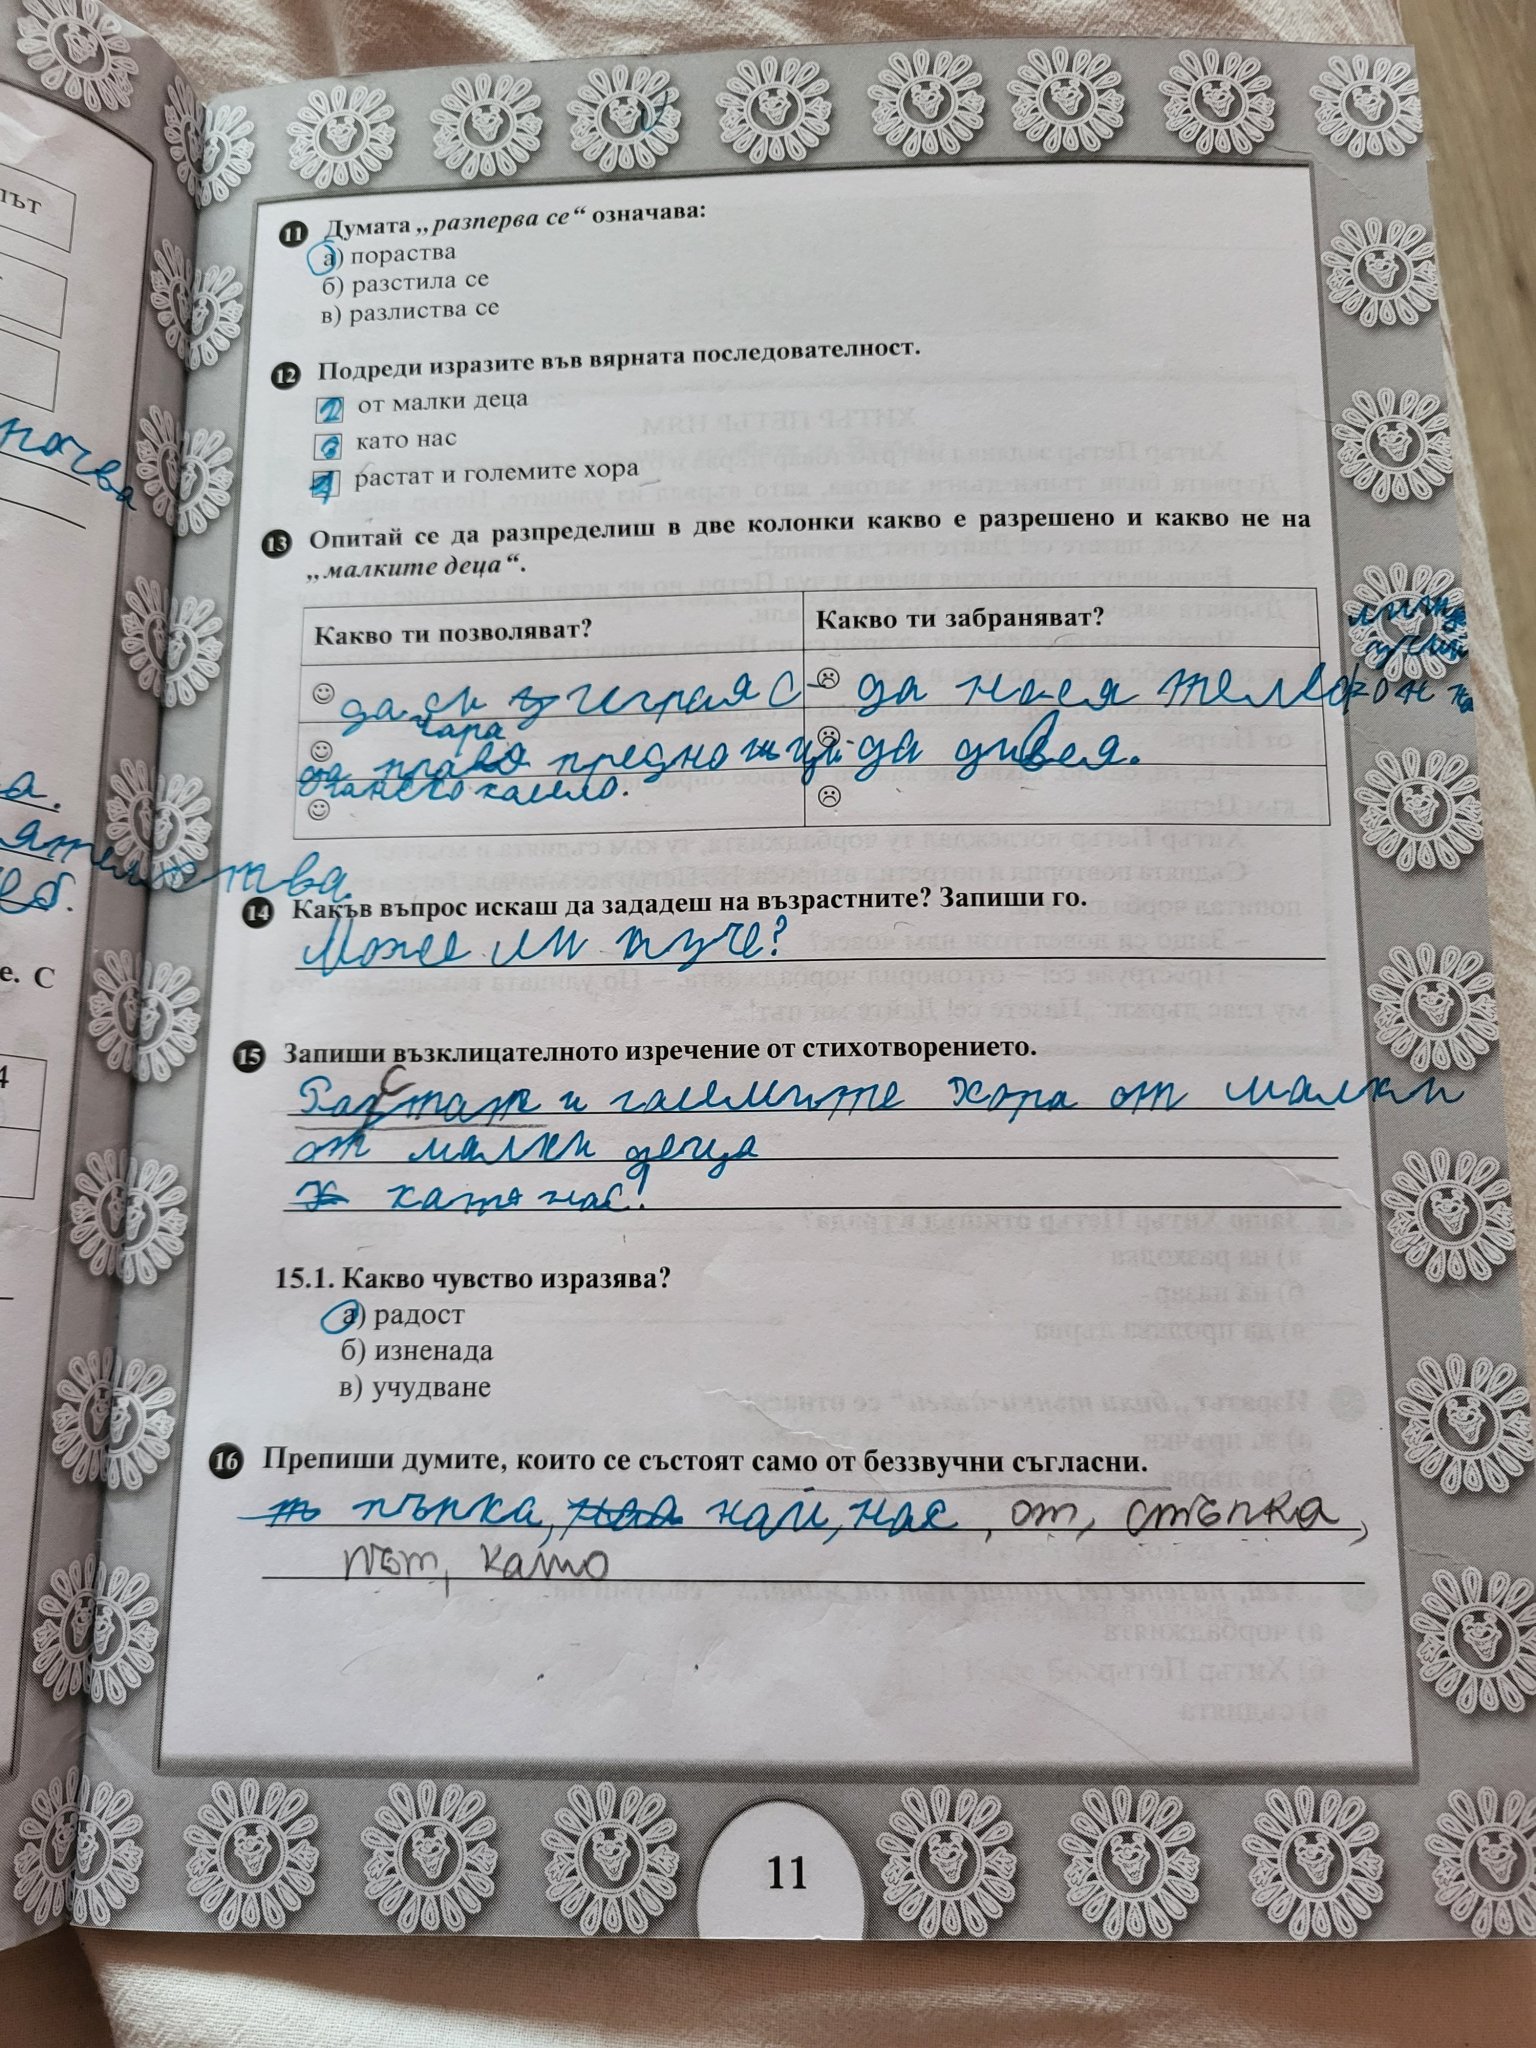 път
11 Думата „разперва се“ означава:
а) пораства
б) разстила се
в) разлиства се
12 Подреди изразите във вярната последователност.
2 от малки деца
3 като нас
1 растат и големите хора
13 Опитай се да разпределиш в две колонки какво е разрешено и какво не на
„малките деца“.
Какво ти позволяват?
Какво ти забраняват?
да си играя с
да нося телефон на
да дивея.
14 Какъв въпрос искаш да зададеш на възрастните? Запиши го.
Може ли куче?
15 Запиши възклицателното изречение от стихотворението.
Растат и големите хора от малки
от малки деца
като нас!
15.1. Какво чувство изразява?
а) радост
б) изненада
в) учудване
16 Препиши думите, които се състоят само от беззвучни съгласни.
пърка, най, нас, от, стъпка,
път, като
е. С
4
11